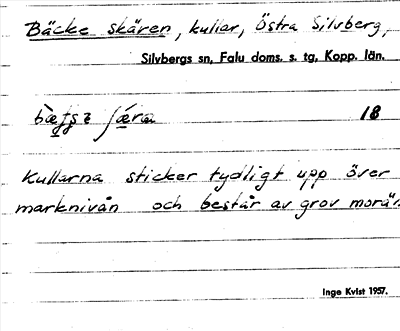 Bäcke skären, kullar, Östra Silvberg,
Silvbergs sn, Falu doms. s. tg, Kopp. län.
18
Kullarna sticker tydligt upp över
marknivån och består av grov morän.
Inge Kvist 1957.